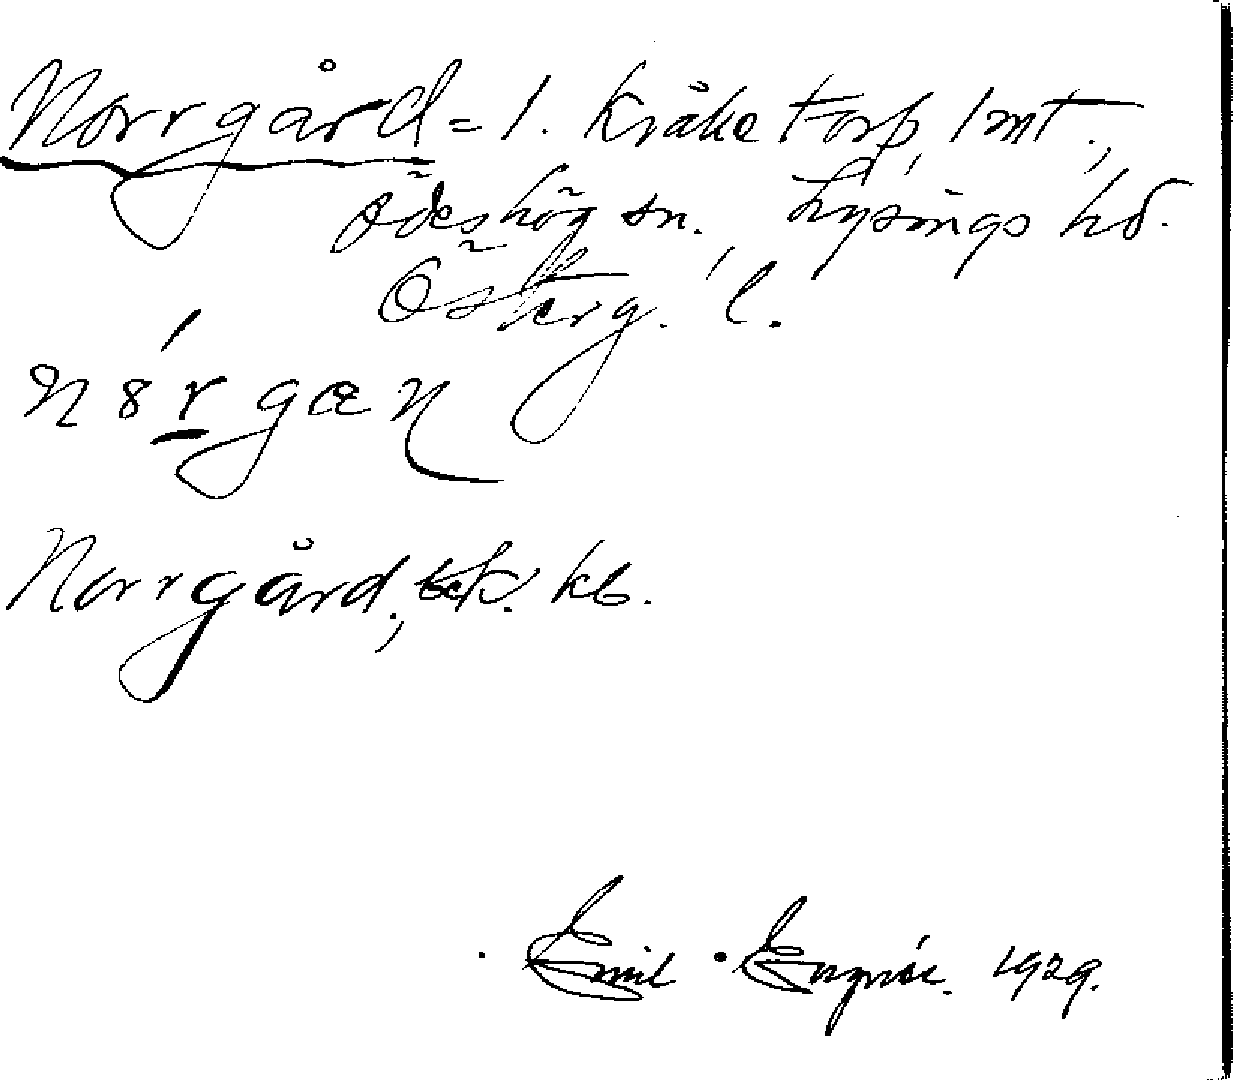 Norrgård = 1. Kråketorp, 1 mt.,
Ödeshög sn. Lysings hd.
Österg. l.
Norrgård, kb.
Emil 1929.